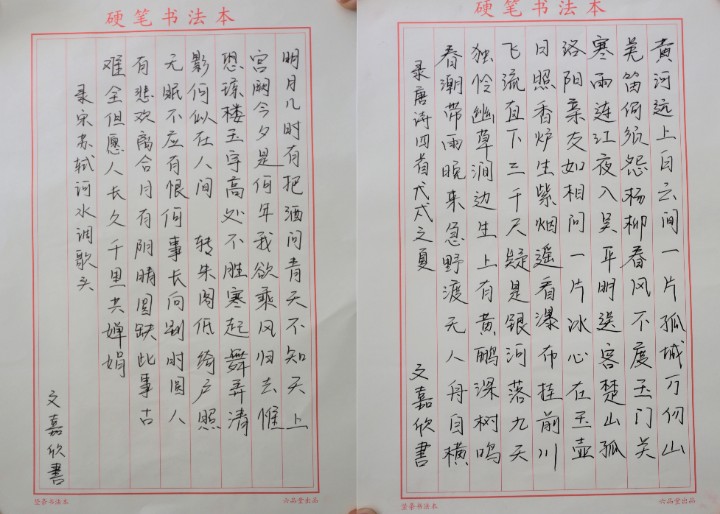 硬笔书法本
明月几时有把酒问青天不知天上
宫阙今夕是何年我欲乘风归去惟
恐琼楼玉宇高处不胜寒起舞弄清
影何似在人间 转朱阁低绮户照
无眠不应有恨何事长向别时圆人
有悲欢离合月有阴晴圆缺此事古
难全但愿人长久千里共婵娟
录宋苏轼词水调歌头
文嘉欣書
书法本
六品堂出品
硬笔书法本
黄河远上白云间一片孤城万仞山
羌笛何须怨杨柳春风不度玉门关
寒雨连江夜入吴平明送客楚山孤
洛阳亲友如相问一片冰心在玉壶
日照香炉生紫烟遥看瀑布挂前川
飞流直下三千尺疑是银河落九天
独怜幽草涧边生上有黄鹂深树鸣
春潮带雨晚来急野渡无人舟自横
录唐诗四首戊戌之夏 文嘉欣書
书法本
六品堂出品